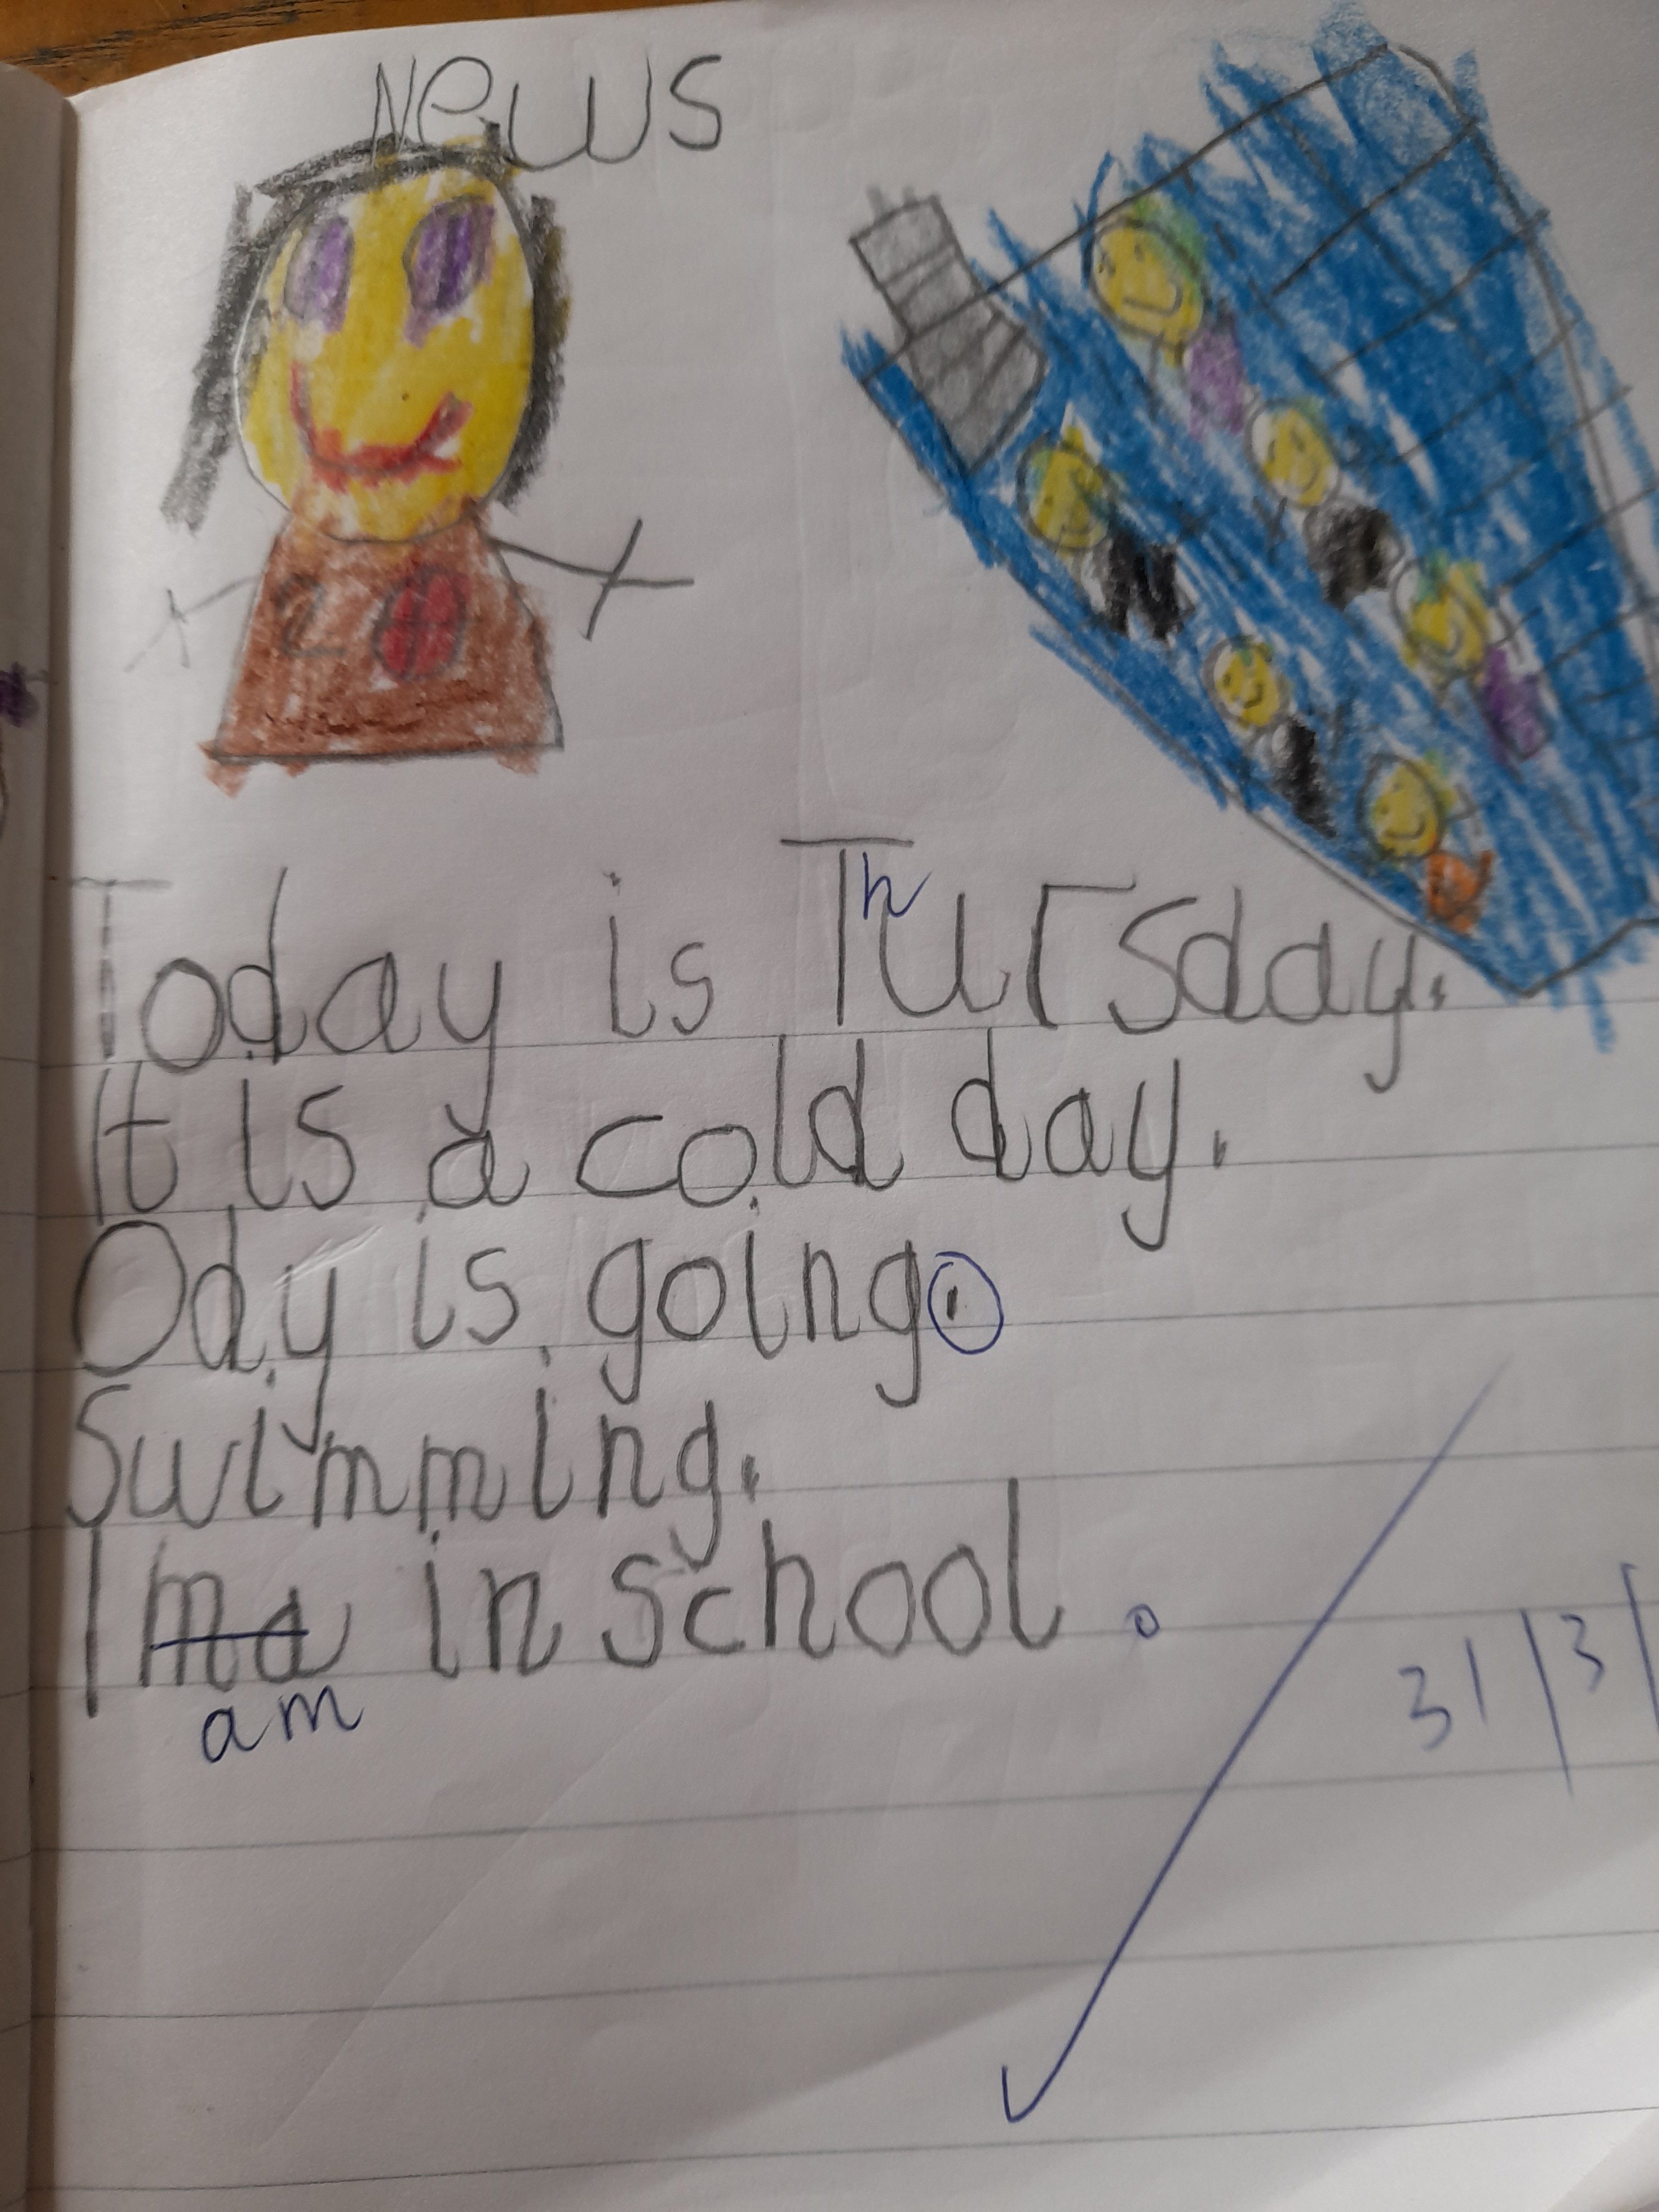 News
20
Today is Thursday.
It is a cold day.
Ody is going.
Swimming.
I ma in school.
am
31/3/